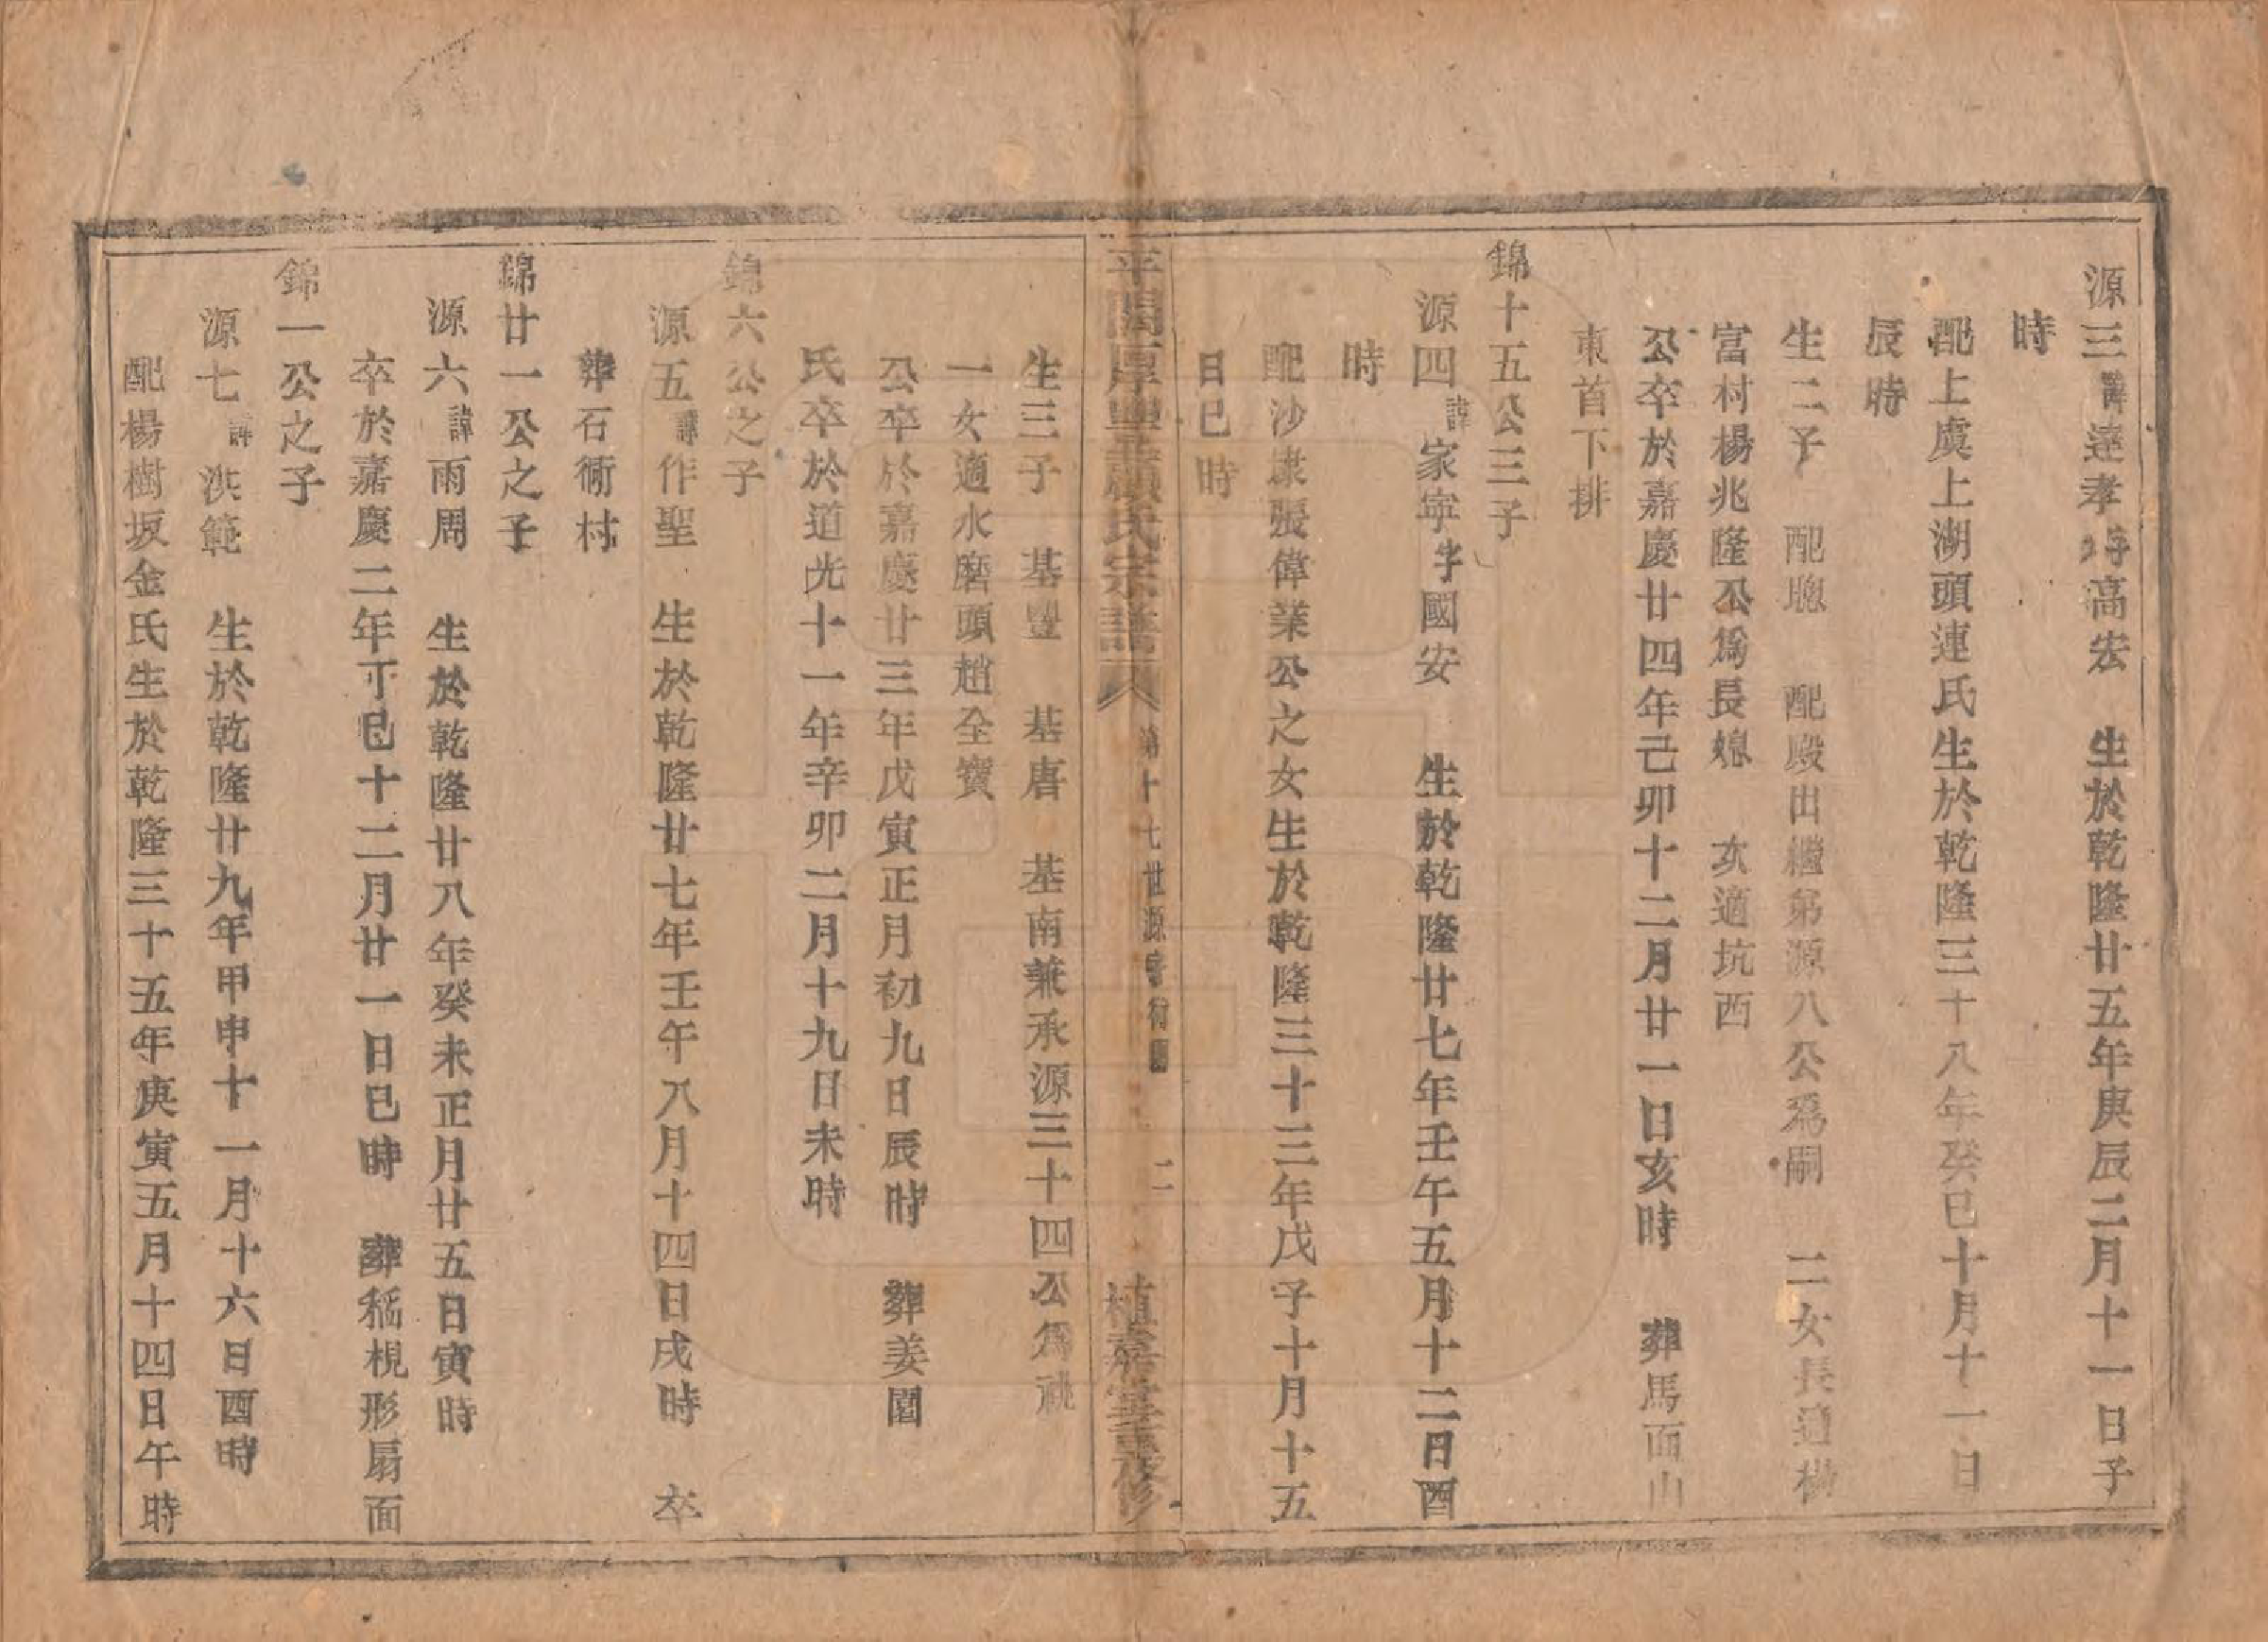 源三諱達孝字高宏　生於乾隆廿五年庚辰二月十一日子
時
配上虞上湖頭連氏生於乾隆三十八年癸巳十月十一日
辰時
生二子　配聰　配殿出繼弟源八公爲嗣　二女長適橫
富村楊兆隆公爲長媳　次適坑西
公卒於嘉慶廿四年己卯十二月廿一日亥時　葬馬面山
東首下排
錦十五公三子
源四諱家寧字國安　生於乾隆廿七年壬午五月十二日酉
時
配沙隶張偉業公之女生於乾隆三十三年戊子十月十五
日巳時
平陽厚豐 氏宗譜 第十七世源字行 二 植嘉堂重修
生三子　基豐　基唐　基南兼承源三十四公爲祧
一女適水磨頭趙全寶
公卒於嘉慶廿三年戊寅正月初九日辰時　葬姜園
氏卒於道光十一年辛卯二月十九日未時
錦六公之子
源五諱作聖　生於乾隆廿七年壬午八月十四日戌時　卒
葬石衕村
錦廿一公之子
源六諱雨周　生於乾隆廿八年癸未正月廿五日寅時
卒於嘉慶二年丁巳十二月廿一日巳時　葬稲梘形扇面
錦一公之子
源七諱洪範　生於乾隆廿九年甲申十一月十六日酉時
配楊樹坂金氏生於乾隆三十五年庚寅五月十四日午時